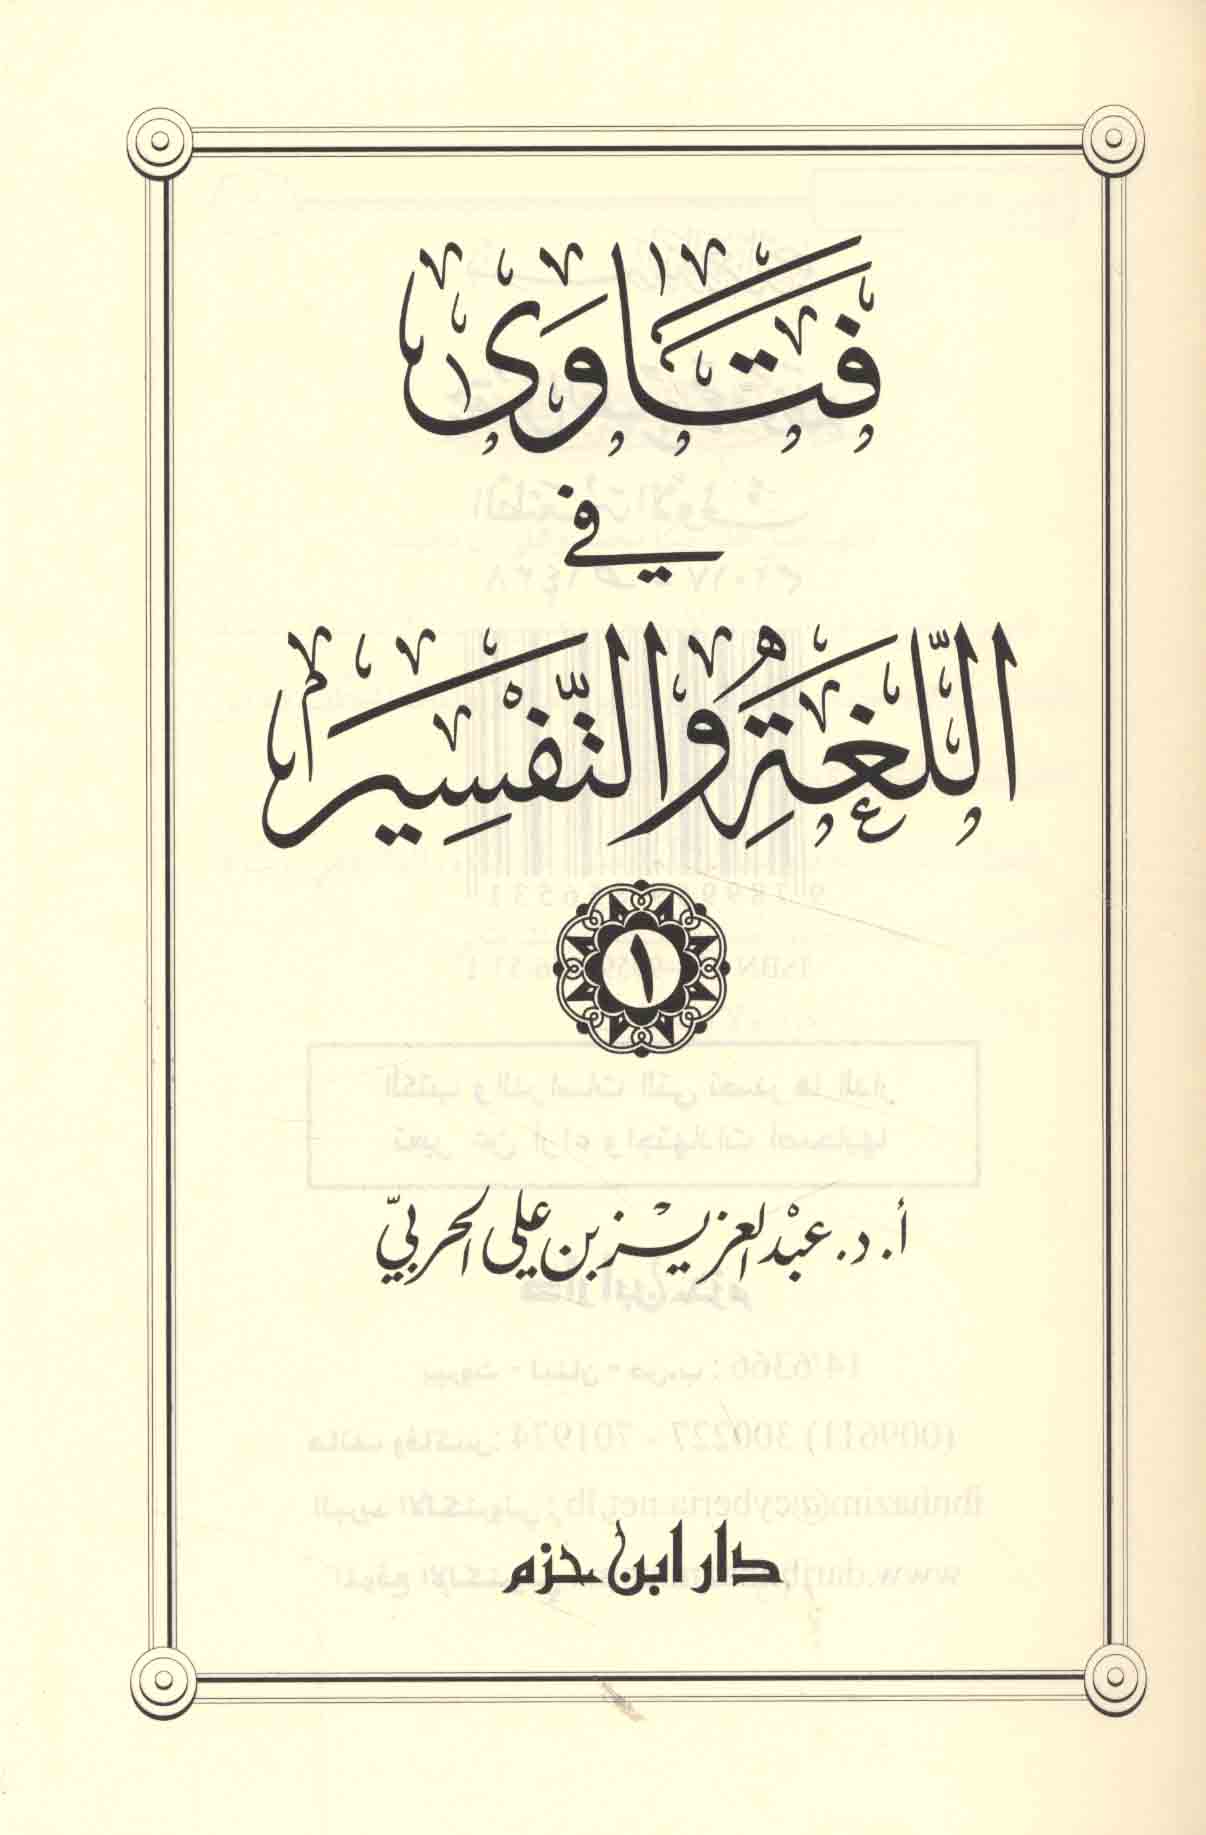 فتاوى
في
اللغة والتفسير
١
أ. د. عبد العزيز بن علي الحربي
دار ابن حزم